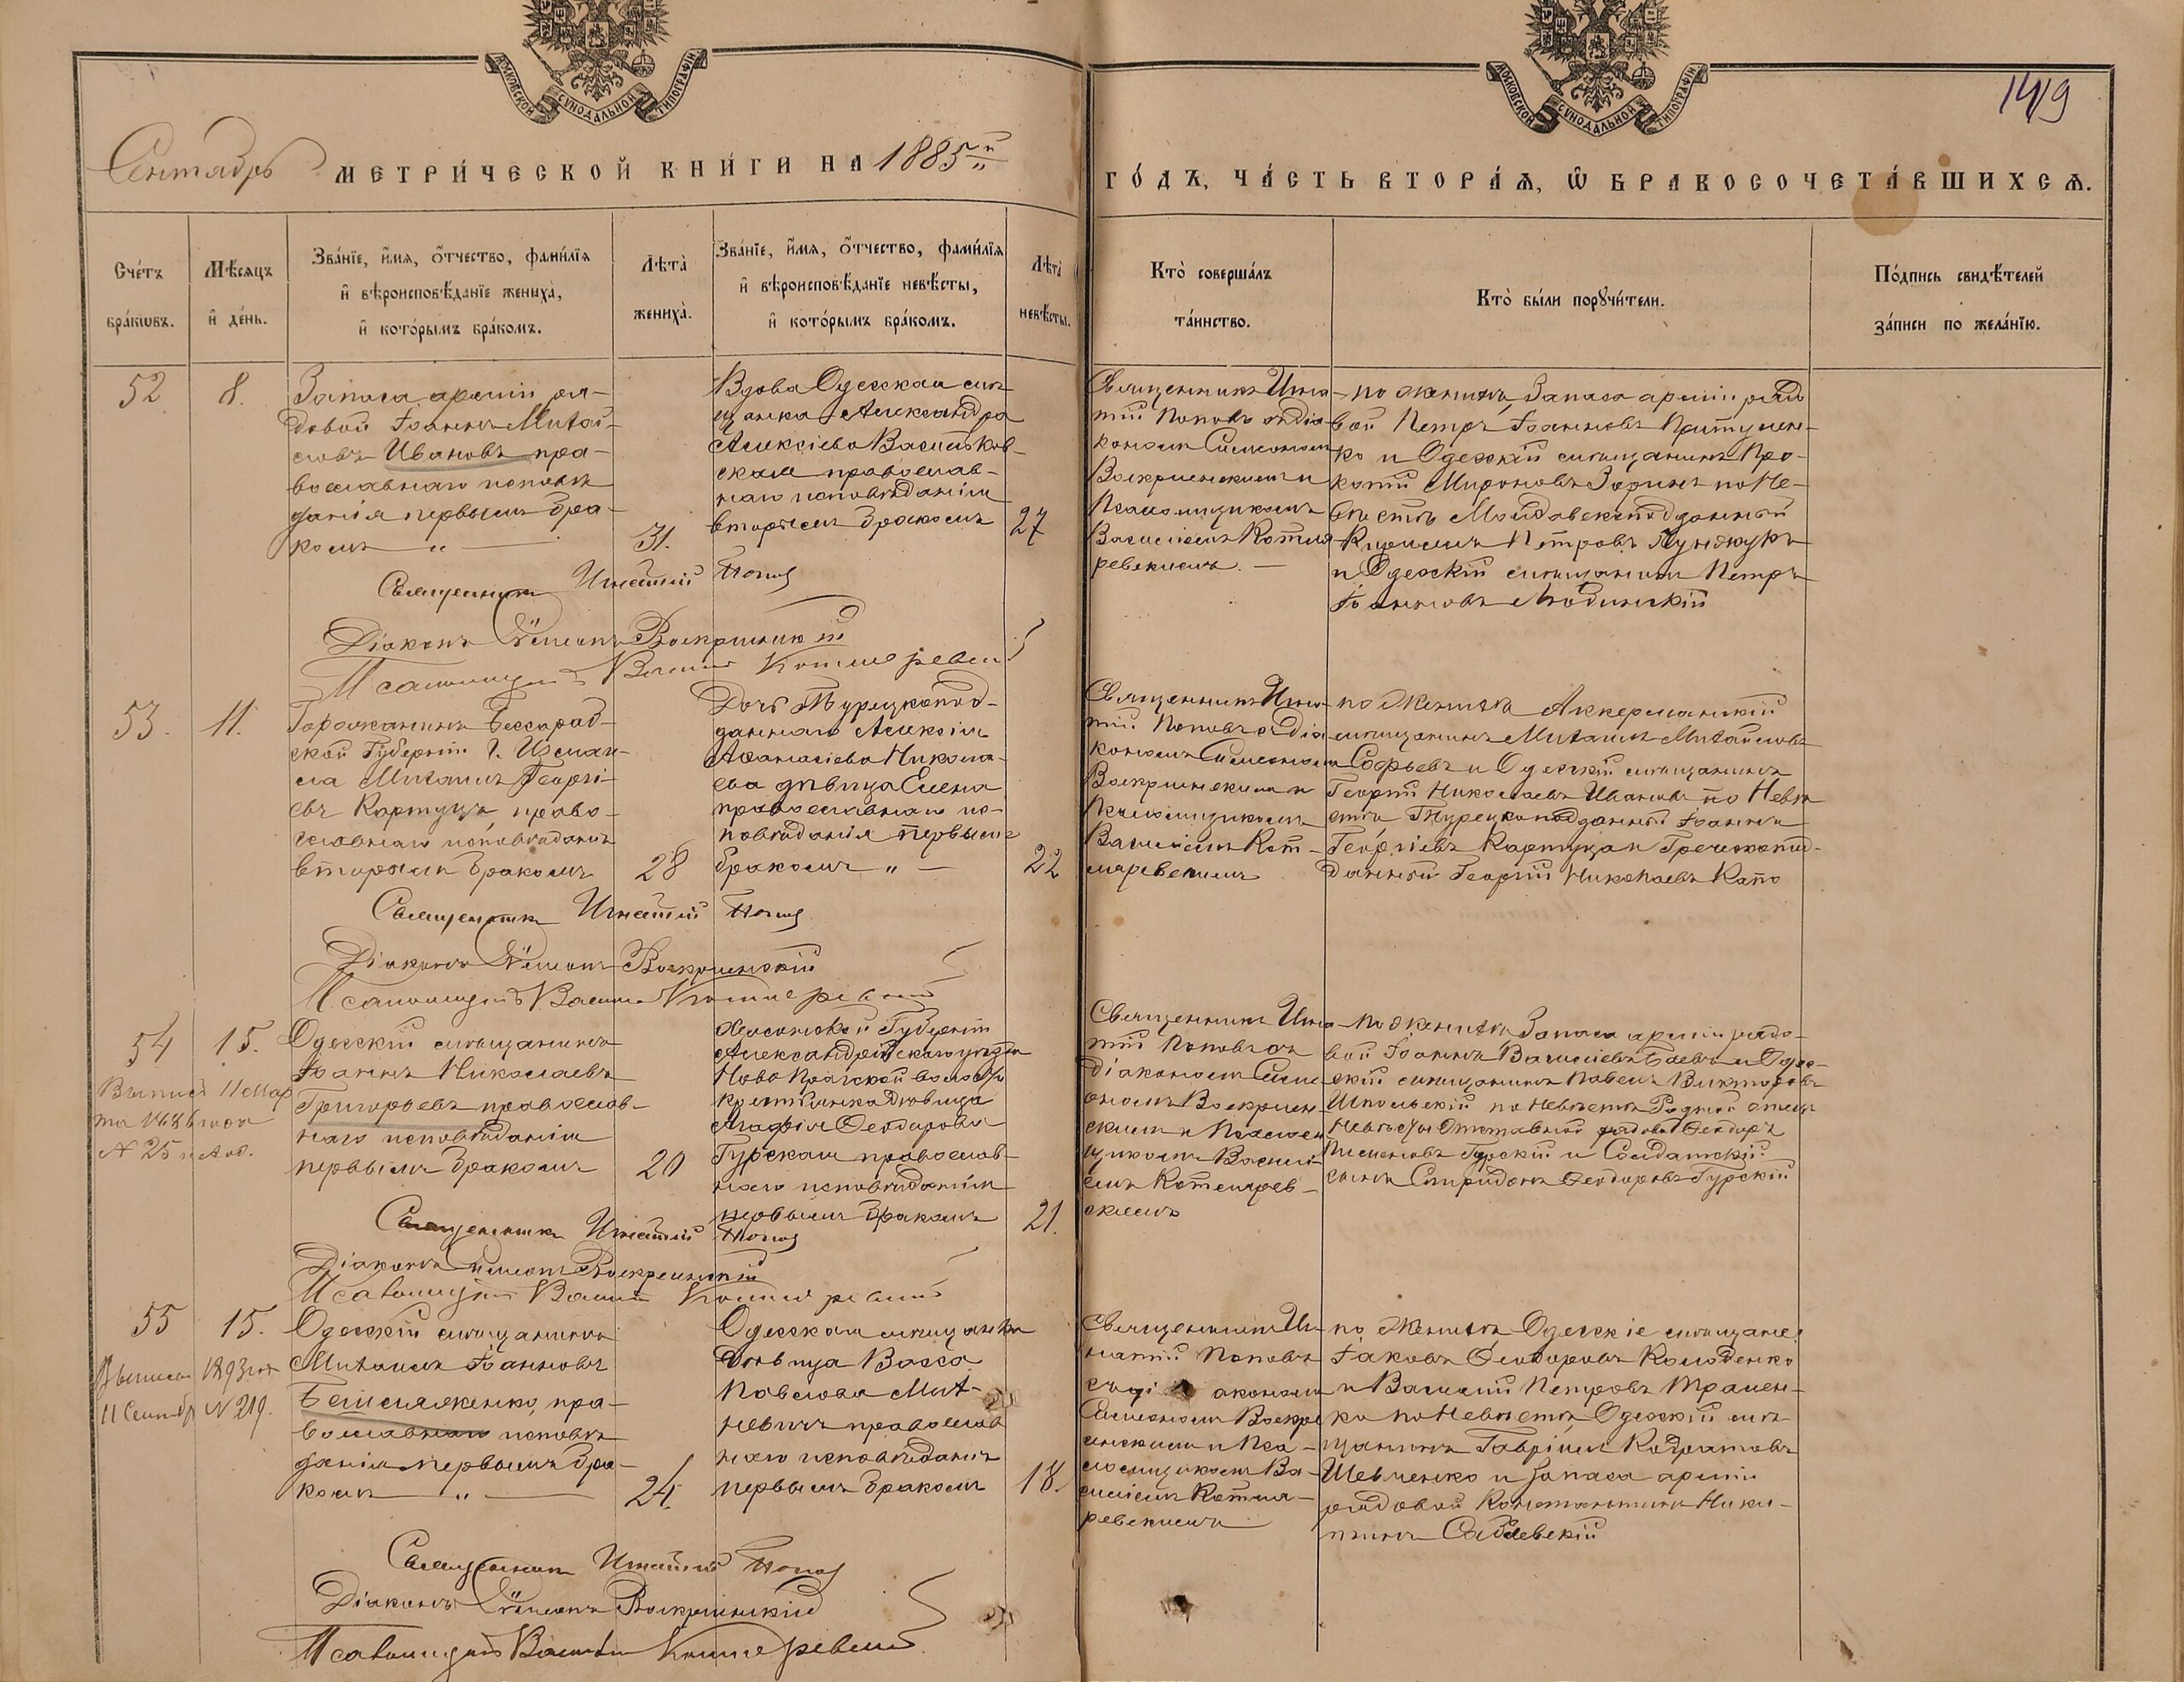 МОСКОВСКОЙ СѴНОДАЛЬНОЙ ТИПОГРАФІИ
МОСКОВСКОЙ СѴНОДАЛЬНОЙ ТИПОГРАФІИ
Сентябрь МЕТРИ́ЧЕСКОЙ КНИ́ГИ НА 1885й ГО́ДЪ, ЧА́СТЬ ВТОРА́Ѧ, Ѡ҆ БРАКОСОЧЕТА́ВШИХСѦ.
Сче́тъ бра́кѡвъ.
Мѣ́сѧцъ и҆ де́нь.
Зва́нїе, и҆́мѧ, ѻ҆́тчество, фами́лїѧ
и҆ вѣроисповѣ́данїе жениха̀,
и҆ кото́рымъ бра́комъ.
Лѣта̀ жениха̀.
Зва́нїе, и҆́мѧ, ѻ҆́тчество, фами́лїѧ
и҆ вѣроисповѣ́данїе невѣ́сты,
и҆ кото́рымъ бра́комъ.
Лѣта̀ невѣ́сты.
Кто̀ соверша́лъ
та́инство.
Кто̀ бы́ли порꙋчи́тели.
По́дпись свидѣ́телей
за́писи по жела́нїю.
52
8.
Запаса арміи ря-
довой Іоаннъ Михай-
ловъ Ивановъ пра-
вославнаго исповѣ
данія первымъ бра-
комъ „ —
31.
Вдова Одесская мѣ
щанка Александра
Алексіева Васильков-
ская православ-
наго исповѣданія
вторымъ бракомъ
27
Священникъ Игна
тій Поповъ съ діа
кономъ Симеономъ
Воскресенскимъ и
Псаломщикомъ
Василіемъ Котля
ревскимъ. —
по женихѣ Запаса арміи рядо
вой Петръ Іоанновъ
ко и Одесскій мѣщанинъ Про-
копій Мироновъ Зоринъ по Не-
вѣстѣ Молдавскоподданный
Петровъ
и Одесскій мѣщанинъ Петръ
Іоанновъ
Священникъ Игнатій Попов
Діаконъ Симеонъ Воскресенскій
Псаломщикъ Василій Котляревскій
53.
11.
Горожанинъ Бессараб-
ской Губерніи г. Измаи-
ла Михаилъ Георгі-
евъ Картужъ право-
славнаго исповѣданія
вторымъ бракомъ
28
Дочь Турецкопод-
даннаго Алексія
Аѳанасіева Никола-
ева дѣвица Елена
православнаго ис-
повѣданія первымъ
бракомъ „ —
22
Священникъ Игна
тій Поповъ съ діа
кономъ Симеономъ
Воскресенскимъ и
Псаломщикомъ
Василіемъ Кот-
ляревскимъ
по Женихѣ Аккерманскій
мѣщанинъ Михаилъ Михайловъ
Софьевъ и Одесскій мѣщанинъ
Георгій Николаевъ Ивановъ по Невѣ
стѣ Турецкоподданный Іоаннъ
Георгіевъ Картужа и Грекопод-
данный Георгій Николаевъ Капо
Священникъ Игнатій Попов
Діаконъ Симеонъ Воскресенскій
Псаломщикъ Василій Котляревскій
54
15.
Выпись 11 мар
та
№ 25
Одесскій мѣщанинъ
Іоаннъ Николаевъ
Григорьевъ православ-
наго исповѣданія
первымъ бракомъ
20
Херсонской Губерніи
Александрійскаго уѣзда
Ново Пражской волости
крестьянка дѣвица
Агафія Ѳеодорова
Гурская православ-
наго исповѣданія
первымъ бракомъ
21.
Священникъ Игна
тій Поповъ съ
діакономъ Симе
ономъ Воскресен
скимъ и Псалом
щикомъ Василі
емъ Котлярев-
скимъ
по женихѣ Запаса арміи рядо-
вой Іоаннъ Василіевъ Баевъ и Одес-
скій мѣщанинъ Павелъ Викторовъ
Шпольскій по Невѣстѣ Родной отецъ
Невѣсты Отставной рядовой Ѳеодоръ
Гурскій и Солдатскій
сынъ Спиридонъ Ѳеодоровъ Гурскій
Священникъ Игнатій Попов
Діаконъ Симеонъ Воскресенскій
Псаломщикъ Василій Котляревскій
55
15.
Выписъ 1893 год
11 Сентябр № 219.
Одесскій мѣщанинъ
Михаилъ Іоанновъ
Бешмаженко, пра-
вославнаго исповѣ
данія первымъ бра-
комъ „ —
24
Одесская мѣщанка
дѣвица Васса
Павлова Мих-
невичъ православ
наго исповѣданія
первымъ бракомъ
18.
Священникъ Иг
натій Поповъ
съ ді акономъ
Симеономъ Воскре
сенскимъ и Пса-
ломщикомъ Ва-
силіемъ Котля-
ревскимъ
по Женихѣ Одесскіе мѣщане
Іаковъ Ѳеодоровъ Колоденко
и Василій Петровъ Трамен-
ко по Невѣстѣ Одесскій мѣ
щанинъ Гавріилъ Кодратовъ
Шевченко и Запаса арміи
рядовой Константинъ Ники-
тинъ
Священникъ Игнатій Попов
Діаконъ Симеонъ Воскресенскій
Псаломщикъ Василій Котляревскій